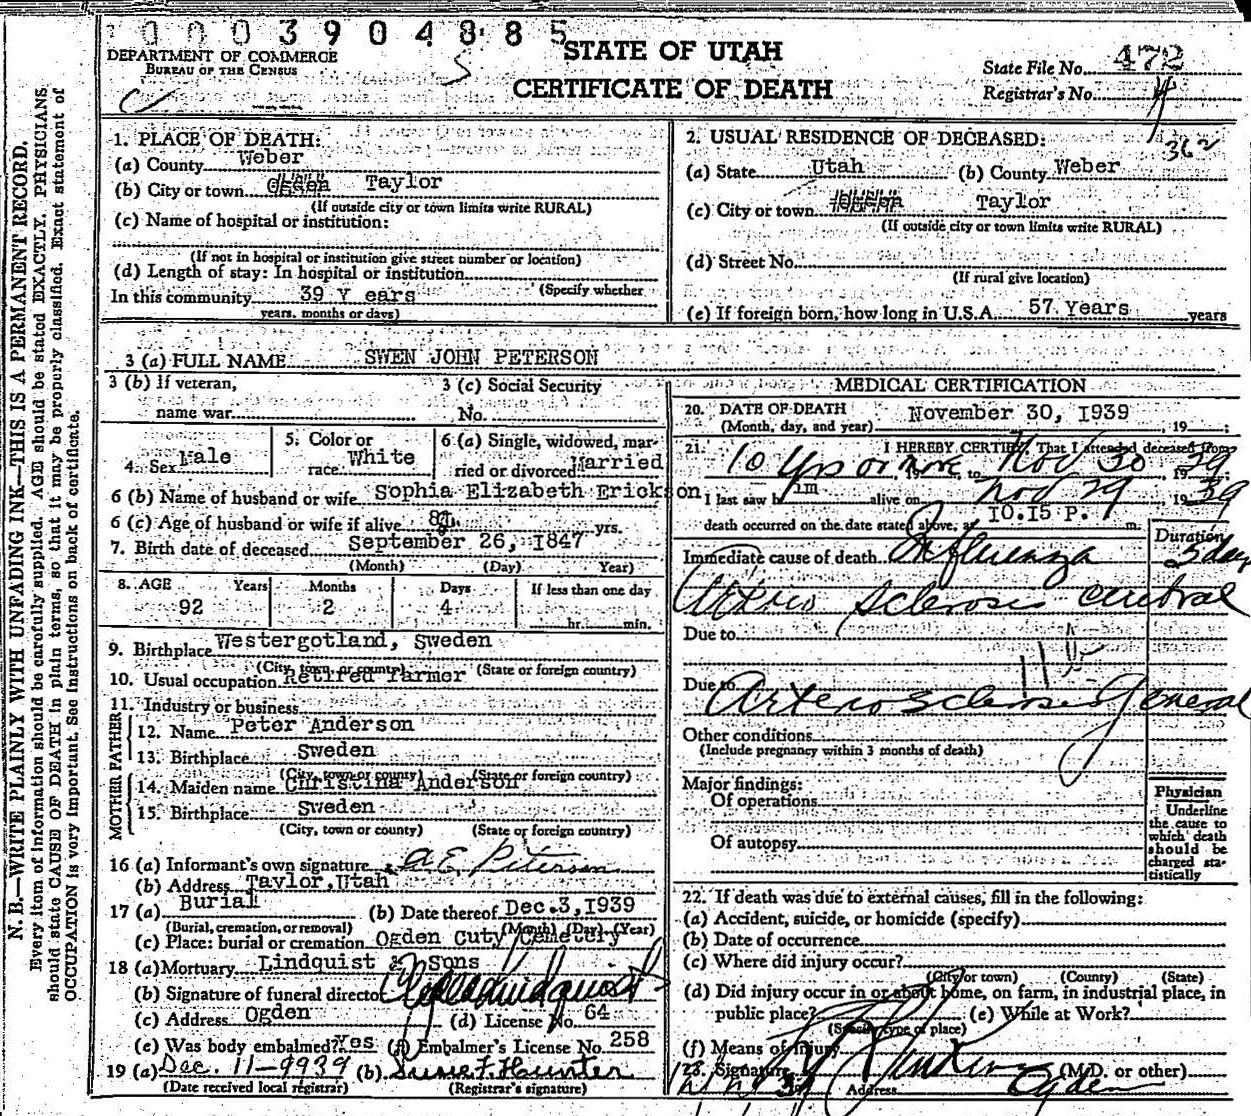 0 0 0 3 9 0 4 8 8 5
DEPARTMENT OF COMMERCE
BUREAU OF THE CENSUS
STATE OF UTAH
CERTIFICATE OF DEATH
State File No. 472
Registrar's No.
N. B.—WRITE PLAINLY WITH UNFADING INK—THIS IS A PERMANENT RECORD.
Every item of information should be carefully supplied. AGE should be stated EXACTLY. PHYSICIANS
should state CAUSE OF DEATH in plain terms, so that it may be properly classified. Exact statement of
OCCUPATION is very important. See Instructions on back of certificate.
1. PLACE OF DEATH:
(a) County Weber
(b) City or town Taylor
(If outside city or town limits write RURAL)
(c) Name of hospital or institution:
(If not in hospital or institution give street number or location)
(d) Length of stay: In hospital or institution
(Specify whether
In this community 39 Y ears
years, months or days)
2. USUAL RESIDENCE OF DECEASED: 362
(a) State Utah (b) County Weber
(c) City or town Taylor
(If outside city or town limits write RURAL)
(d) Street No.
(If rural give location)
(e) If foreign born, how long in U.S.A. 57 Years years
3 (a) FULL NAME SWEN JOHN PETERSON
3 (b) If veteran, name war
3 (c) Social Security No.
4. Sex Male
5. Color or race White
6 (a) Single, widowed, married or divorced Married
6 (b) Name of husband or wife Sophia Elizabeth Erickson
6 (c) Age of husband or wife if alive yrs.
7. Birth date of deceased September 26, 1847
(Month) (Day) Year)
8. AGE Years Months Days If less than one day
92 2 4 hr. min.
9. Birthplace Westergotland, Sweden
(City, town, or county) (State or foreign country)
10. Usual occupation Retired farmer
11. Industry or business
FATHER
12. Name Peter Anderson
13. Birthplace Sweden
(City, town or county) (State or foreign country)
MOTHER
14. Maiden name Christina Anderson
15. Birthplace Sweden
(City, town or county) (State or foreign country)
16 (a) Informant's own signature A. E. Peterson
(b) Address Taylor, Utah
17 (a) Burial (b) Date thereof Dec. 3, 1939
(Burial, cremation, or removal) (Month) (Day) (Year)
(c) Place: burial or cremation Ogden Cuty Cemetery
18 (a) Mortuary Lindquist & Sons
(b) Signature of funeral director
(c) Address Ogden (d) License No. 64
(e) Was body embalmed? Yes (f) Embalmer's License No. 258
19 (a) Dec. 11-9939 (b)
(Date received local registrar) (Registrar's signature)
MEDICAL CERTIFICATION
20. DATE OF DEATH November 30, 1939 , 19 ;
(Month, day, and year)
21. I HEREBY CERTIFY, That I attended deceased from
10 yrs or more, 19 , to Nov 30 1939
I last saw him alive on Nov 29 1939
death occurred on the date stated above, at 10.15 P. m.
Duration
Immediate cause of death Influenza 5 days
Arterio sclerosis cerebral
Due to
Due to Arterio sclerosis General
Other conditions
(Include pregnancy within 3 months of death)
Major findings:
Of operations
Of autopsy
Physician
Underline
the cause to
which death
should be
charged sta-
tistically
22. If death was due to external causes, fill in the following:
(a) Accident, suicide, or homicide (specify)
(b) Date of occurrence
(c) Where did injury occur?
(City or town) (County) (State)
(d) Did injury occur in or about home, on farm, in industrial place, in
public place? (e) While at Work?
(Specify type of place)
(f) Means of Injury
23. Signature (M.D. or other)
Address Ogden